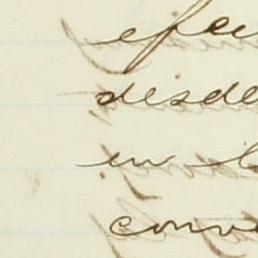 efec
desde
en l
conv